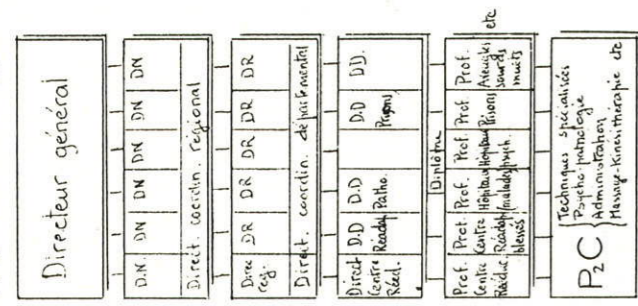 Directeur général
D.N. DN DN DN DN DN
Direct. coordin. régional
Direc reg. DR DR DR DR DR
Direct. coordin. départemental
Direct Centre Rééd. D.D Réadap D.D Patho. D.D Prisons DD.
Diplôme
Prof. Centre Rééduc. Prof. Centre Réadap blessés Prof. Hôpitaux malades Prof. Hôpitaux psych. Prof Prisons Prof. Aveugles sourds muets etc
P2C
Techniques spécialisées
Psycho-pathologie
Administration
Massage-Kinésithérapie etc